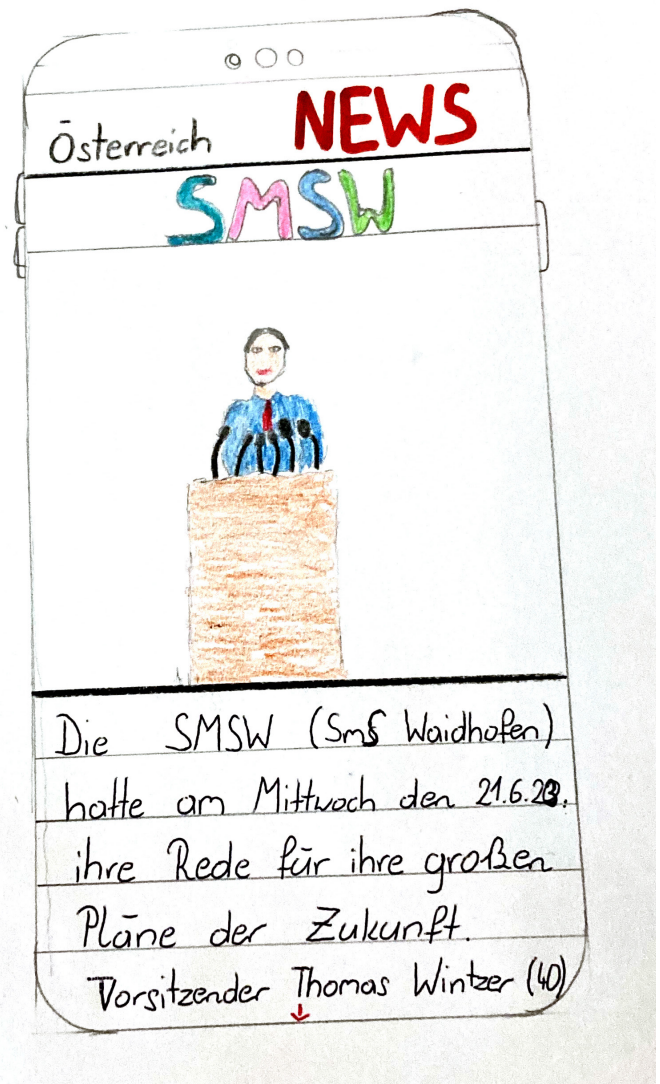 Österreich NEWS
SMSW
Die SMSW (Sms Waidhofen)
hatte am Mittwoch den 21.6.23.
ihre Rede für ihre großen
Pläne der Zukunft.
Vorsitzender Thomas Wintzer (40)